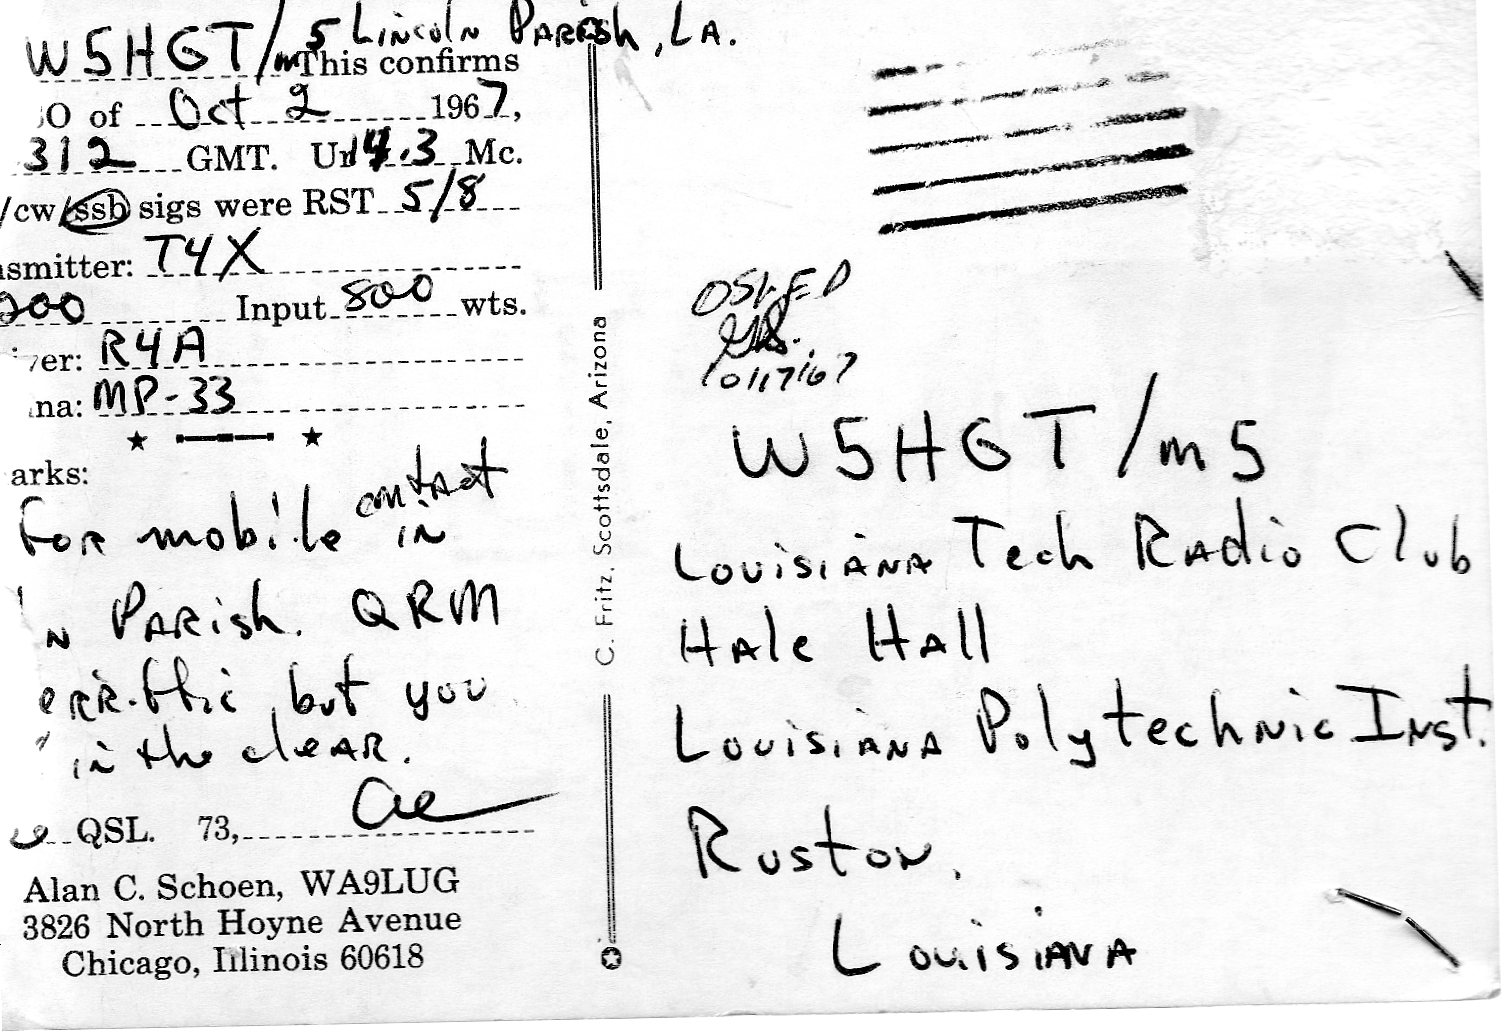 W5HGT/m5 Lincoln Parish, LA.
This confirms
O of Oct 2 1967,
312 GMT. Ur 14.3 Mc.
/cw/ssb sigs were RST 5/8
smitter: T4X
200 Input 800 wts.
er: R4A
na: MP-33
arks:
For mobile contact in
N Parish. QRM
erratic, but you
in the clear.
QSL. 73, Al
Alan C. Schoen, WA9LUG
3826 North Hoyne Avenue
Chicago, Illinois 60618
C. Fritz, Scottsdale, Arizona
QSL'ED
10/17/67
W5HGT/m5
Louisiana Tech Radio Club
Hale Hall
Louisiana Polytechnic Inst.
Ruston,
Louisiana